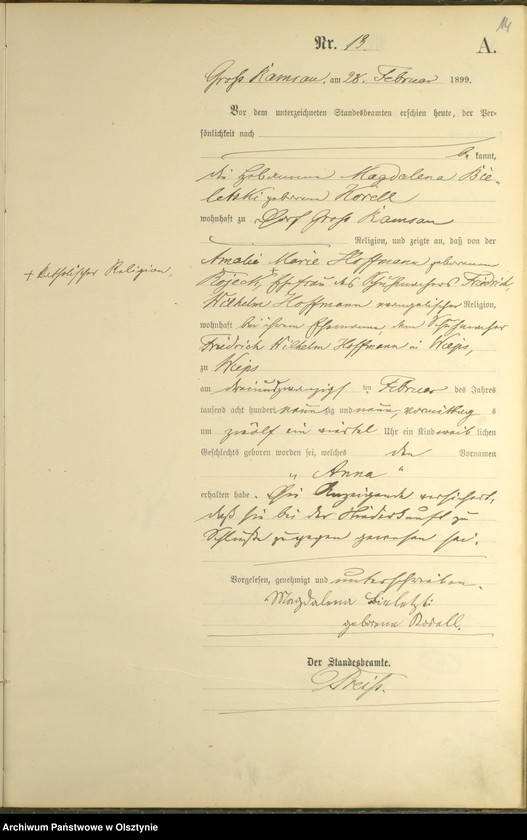 14
Nr. 13.
A.
Groß Ramsau, am 28. Februar 1899.
Vor dem unterzeichneten Standesbeamten erschien heute, der Per-
sönlichkeit nach
be kannt,
die Hebamme Magdalena Bie-
letzki geborene Korell
wohnhaft zu Dorf Groß Ramsau
Religion, und zeigte an, daß von der
Amalie Marie Hoffmann geborenen
+ katholischer Religion,
+ Ehefrau des Schuhmachers Friedrich
Wilhelm Hoffmann evangelischer Religion,
wohnhaft bei ihrem Ehemanne, dem Schuhmacher
Friedrich Wilhelm Hoffmann in Wieps,
zu Wieps
am dreiundzwanzigsten Februar des Jahres
tausend acht hundert neunzig und neun, vormittags
um zwölf ein viertel Uhr ein Kind weiblichen
Geschlechts geboren worden sei, welches den Vornamen
„ Anna “
erhalten habe. Die Anzeigende versichert,
daß sie bei der Niederkunft zu
zugegen gewesen sei.
Vorgelesen, genehmigt und unterschrieben.
Magdalena Bieletzki
geborene Korell.
Der Standesbeamte.
Archiwum Państwowe w Olsztynie